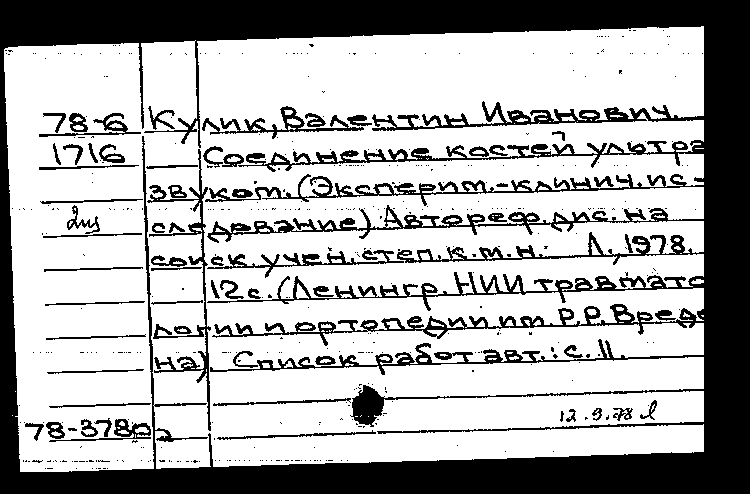 78-6 Кулик, Валентин Иванович.
1716 Соединение костей ультра
звуком. (Эксперим.-клинич. ис-
следование) Автореф. дис. на
соиск. учен. степ. к.м.н. Л., 1978.
12 с. (Ленингр. НИИ травмато
логии и ортопедии им. Р.Р. Вреде
на). Список работ авт.: с. 11.
12.9.78